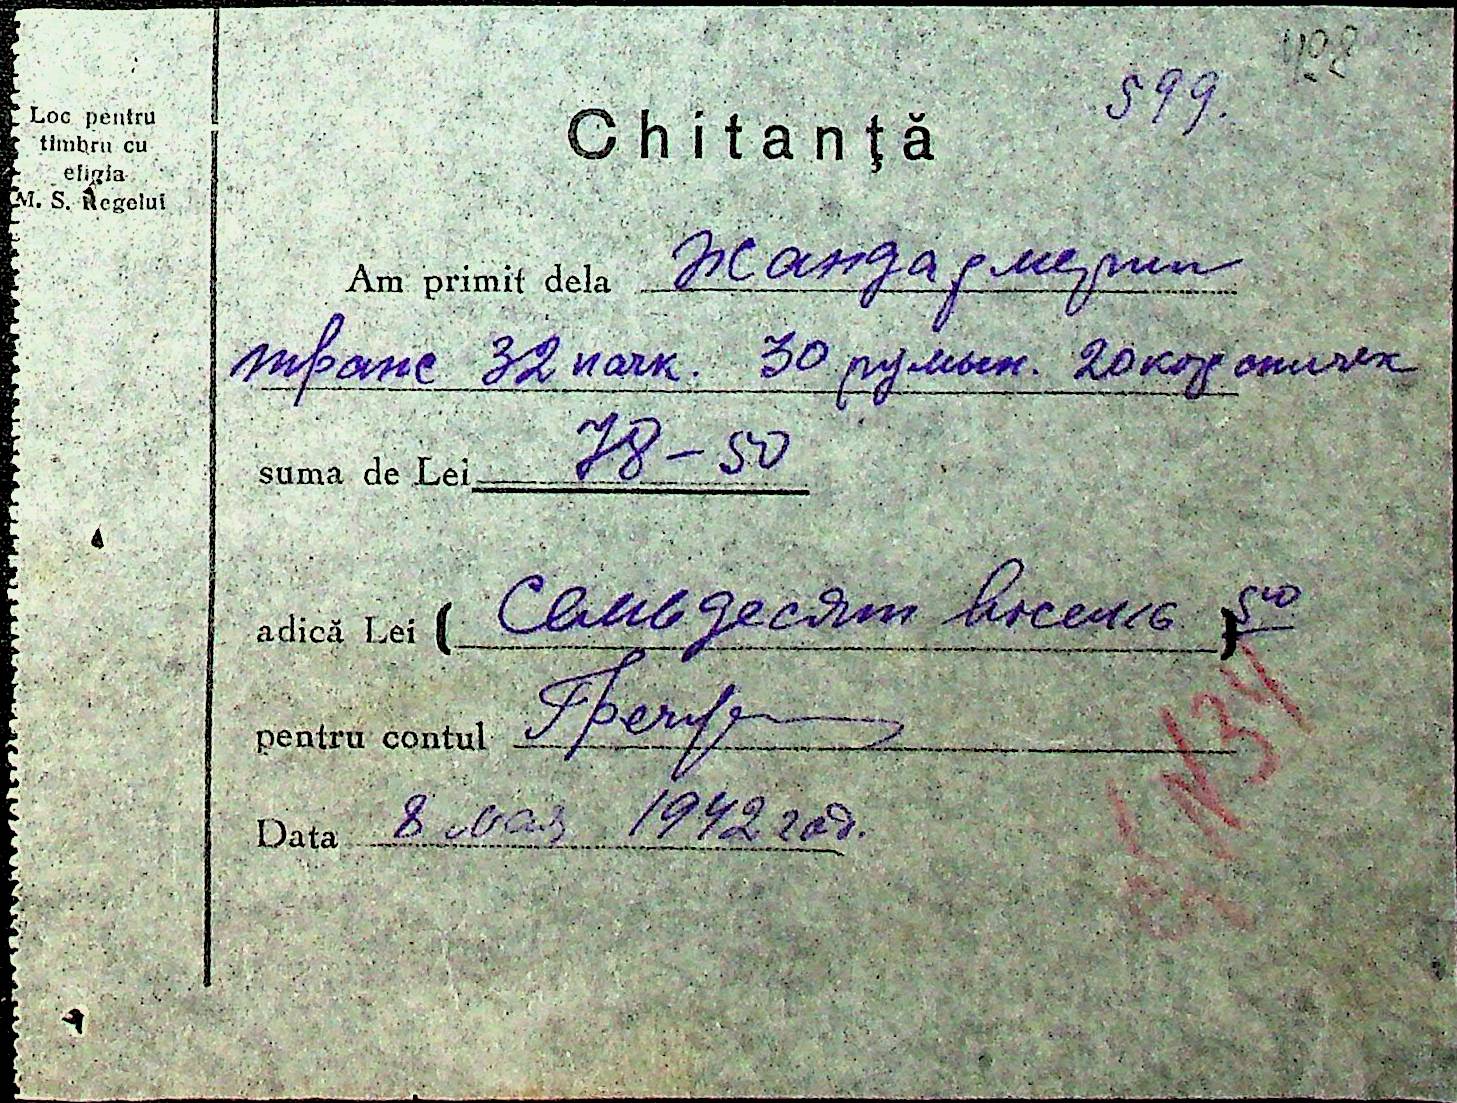 408
599.
Loc pentru
timbru cu
efigia
M. S. Regelui
Chitanţă
Am primit dela Жандармерии
транс 32 пачк. 30 румын. 20 коробочек
suma de Lei 78-50
adică Lei ( Семьдесят восемь ) 50
pentru contul
Data 8 мая 1942 год.
№34